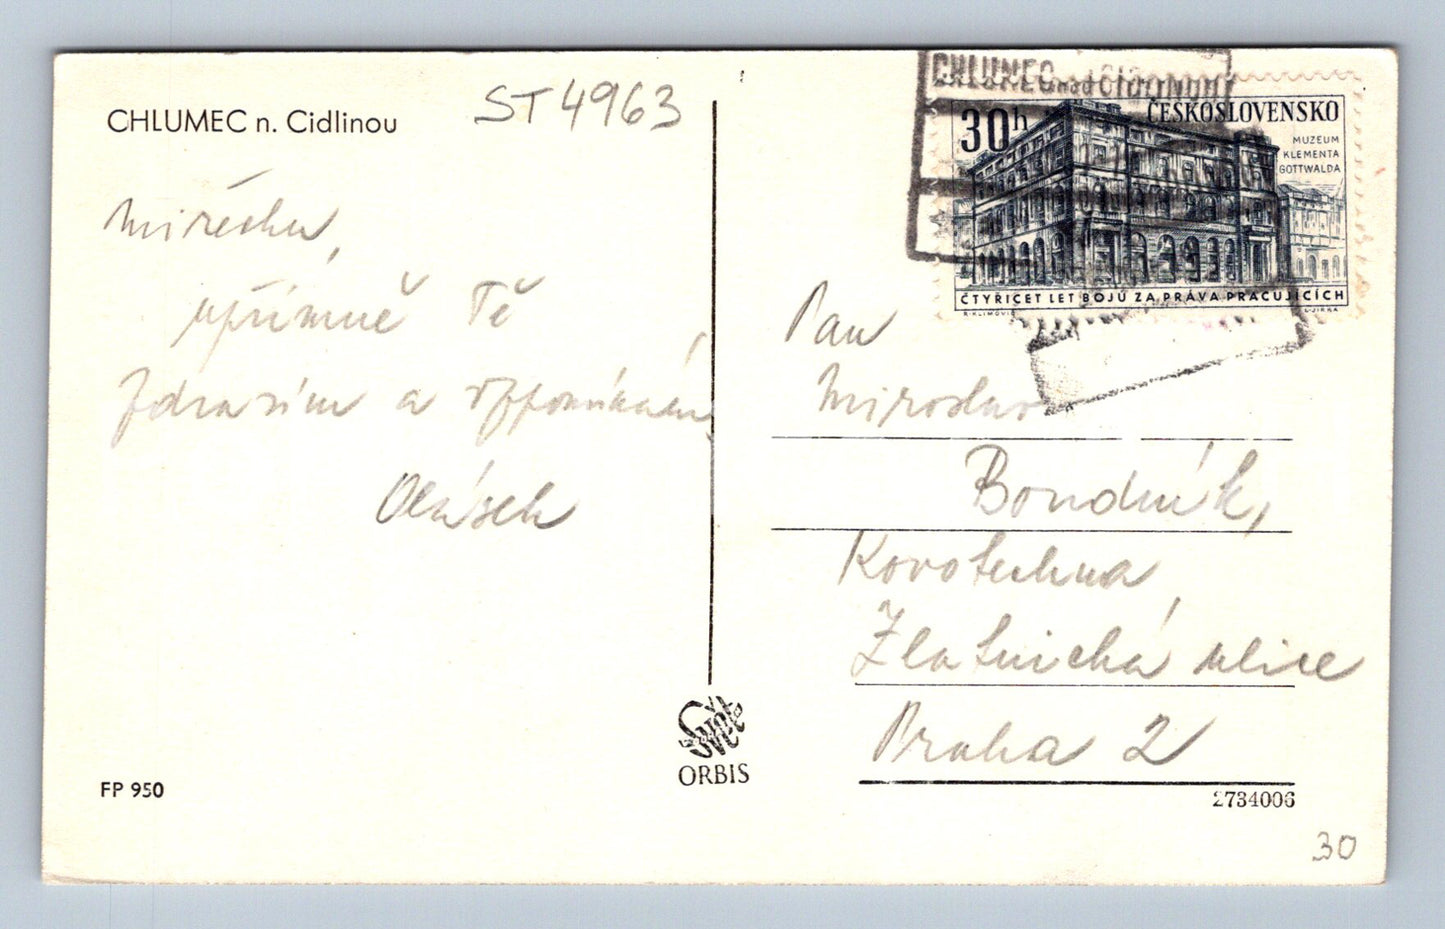 CHLUMEC n. Cidlinou
ST 4963
Mirečku,
upřímně Tě
zdravím a vzpomínám
Olášek
FP 950
Svět
ORBIS
CHLUMEC nad CIDLINOU
30h ČESKOSLOVENSKO
MUZEUM
KLEMENTA
GOTTWALDA
ČTYŘICET LET BOJŮ ZA PRÁVA PRACUJÍCÍCH
Pan
Miroslav
Bondník,
Kovotechna,
Zlatnická ulice
Praha 2
2734006
30